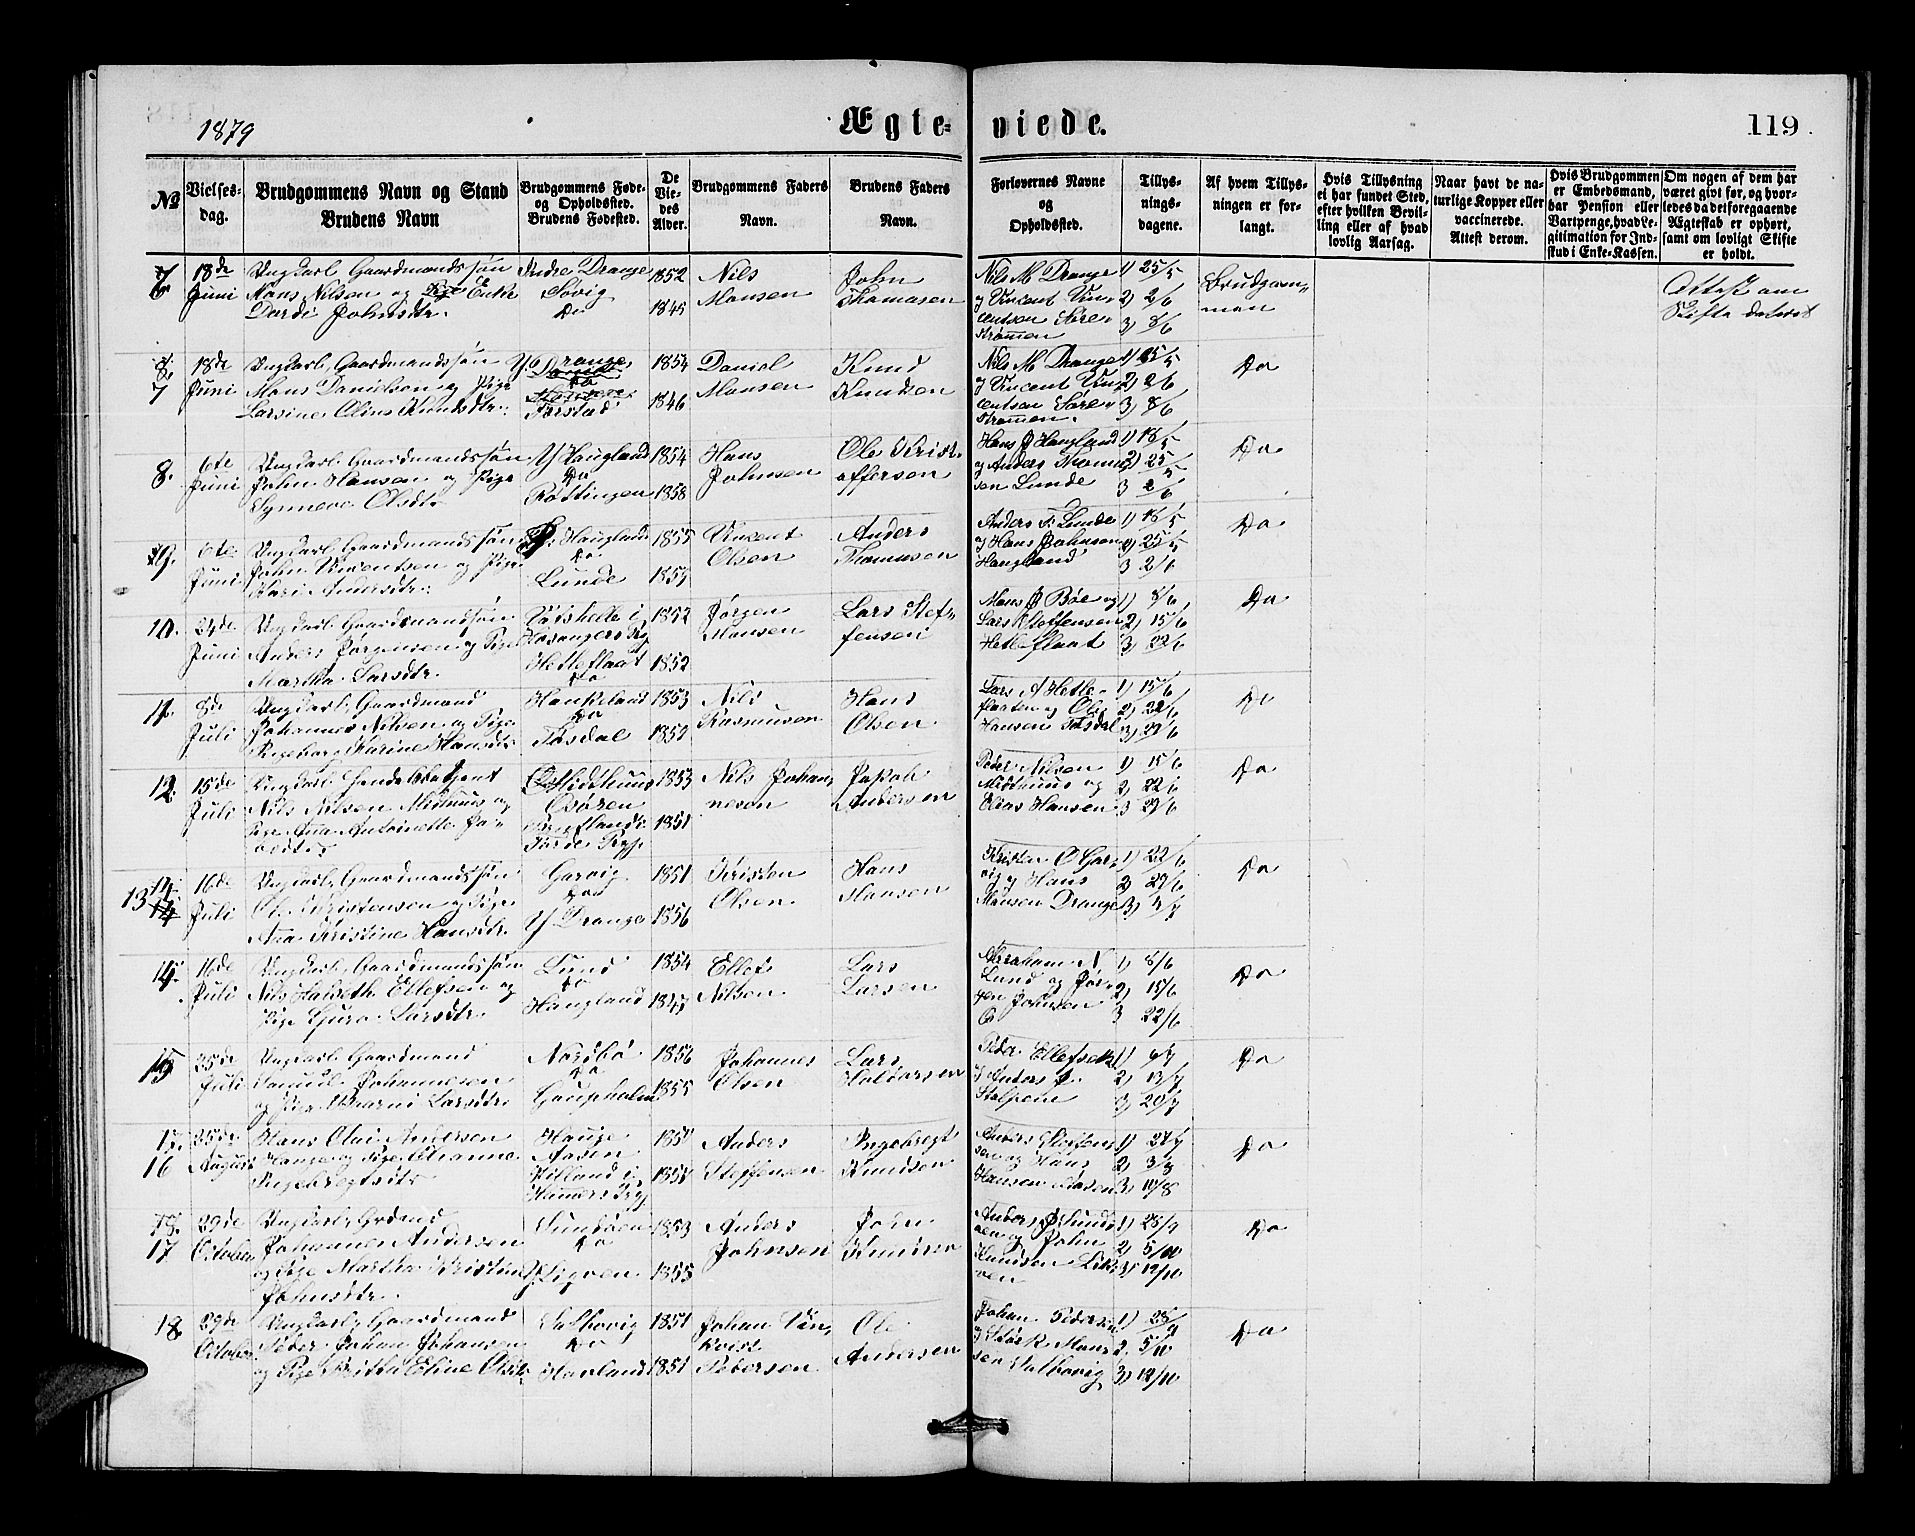 1879
Ægteviede.
119
№
Vielses-
dag.
Brudgommens Navn og Stand
Brudens Navn
Brudgommens Føde-
og Opholdssted.
Brudens Fødested.
De
Vie-
des
Alder.
Brudgommens Faders
Navn.
Brudens Faders
Navn.
Forlovernes Navne
og
Opholdssted.
Tillys-
nings-
dagene.
Af hvem Tillys-
ningen er for-
langt.
Hvis Tillysning
ei har fundet Sted,
efter hvilken Bevil-
ling eller af hvad
lovlig Aarsag.
Naar havt de na-
turlige Kopper eller
vaccinerede.
Attest derom.
Hvis Brudgommen
er Embedsmand,
har Pension eller
Vartpenge, hvad Le-
gitimation for Ind-
stud i Enke-Kassen.
Om nogen af dem har
været givt før, og hvor-
ledes da det foregaaende
Ægteskab er ophørt,
samt om lovligt Skifte
er holdt.
18de
Juni
Ungkarl Gaardmandssøn
Mons Nilsen og Enke
Johnsdtr.
Drange
Søvig
Do
1852
1845
Nils
Monsen
John
Thomasen
Nils M Drange
og Vincent Vin-
centsen Søre
Strømmen
1) 25/5
2) 2/6
3) 8/6
Brudgom-
men
Attest om
Skifte dateret
7
18de
Juni
Ungkarl Gaardmandssøn
Mons Danielsen og Pige
Larsine Oline Knudsdtr.
Y. Drange
Do
Tøsstad
1854
1846
Daniel
Monsen
Knud
Knudsen
Nils M Drange
og Vincent Vin-
centsen Søre
Strømmen.
1) 25/5
2) 2/6
3) 8/6
Do
8.
6te
Juni
Ungkarl Gaardmandssøn
John Hansen og Pige
Synneve Olsdtr
Y Haugland
Do
Røttingen
1854
1858
Hans
Johnsen
Ole Krist-
offersen
Hans J Haugland
og Anders Thomas-
sen Lunde
1) 18/5
2) 25/5
3 2/6
Do
9.
6te
Juni
Ungkarl Gaardmandssøn
John Vincentsen og Pige
Kari Andersdtr.
Haugland
Do
Lunde
1855
Vincent
Olsen
Anders
Thomasen
Anders T. Lunde
og Hans Johnsen
Haugland
1) 18/5
2) 25/5
3 2/6
Do
10.
24de
Juni
Ungkarl Gaardmandssøn
Anders Jørgensen og Pige
Martha Larsdtr.
Hosangers Pgj
Hetleflaat
Do
1852
1852
Jørgen
Monsen
Lars Stef-
fensen
Mons J Bøe og
Lars Steffensen
Hetleflaat
1) 8/6
2) 15/6
3) 22/6
Do
11.
8de
Juli
Ungkarl Gaardmand
Johannes Nilsen og Pige
Ingeborg Karine Hansdtr
Hauskeland
Do
Tøsdal
1853
1852
Nils
Rasmusen
Hans
Olsen
Lars A Hetle-
flaaten og Ole
Hansen Tøsdal
1) 15/6
2) 22/6
3) 29/6
Do
12.
15de
Juli
Ungkarl Handelsbetjent
Nils Nilsen Midthuus og
Pige Ana Antoinette Ja-
cobsdtr
Midthuus
Osøren
1853
1851
Nils Johan-
nesen
Jakob
Andersen
Peder Nilsen
Midthuus og
Elias Hansen
1) 15/6
2) 22/6
3 29/6
Do
13
16de
Juli
Ungkarl Gaardmandssøn
Ole Kristensen og Pige
Ana Kristine Hansdtr.
Gasvig
Do
Y Drange
1851
1856
Kristen
Olsen
Hans
Monsen
Kristen O Gas-
vig og Hans
Monsen Drange
1) 22/6
2) 29/6
3)
Do
14.
16de
Juli
Ungkarl Gaardmandssøn
Nils Halseth Ellefsen og
Pige Guro Larsdtr.
Lund
Do
Haugland
1854
1847
Ellef
Nilsen
Lars
Larsen
Abraham N
Lund og Jør-
gen Johnsen
Os
1) 8/6
2) 15/6
3 22/6
Do
15
25de
Juli
Ungkarl Gaardmand
Samuel Johannesen
og Pige Larsdtr
Nordbø
Do
Gaupholm
1856
1855
Johannes
Olsen
Lars
Haldorsen
Peder Ellefsen
og Anders J.
1) 6/7
2) 13/7
3) 20/7
Do
16
25de
August
Hans Olai Andersen
Hauge og Pige
Ingebregtsdtr
Hauge
Aasen
Hilland i
Hammers Pgj
Anders
Steffensen
Ingebregt
Knudsen
Anders Steffen-
sen og Hans
Hansen Aasen
1) 27/7
2) 3/8
3) 10/8
Do
17
29de
October
Ungkarl Grdmd
Johannes Andersen
og Pige Martha Kristine
Johnsdtr.
Sundøen
Do
1853
1855
Anders
Johnsen
John
Knudsen
og John
Knudsen
1) 28/9
2) 5/10
3) 12/10
Do
18
29de
October
Ungkarl Gaardmand
Peder Johan Johansen
og Pige Britha Eline Olsdtr
Do
Havland
1851
1851
Johan Vin-
Pedersen
Ole
Andersen
Johan Pedersen
og Mons-
sen
1) 28/9
2. 5/10
3) 12/10
Do